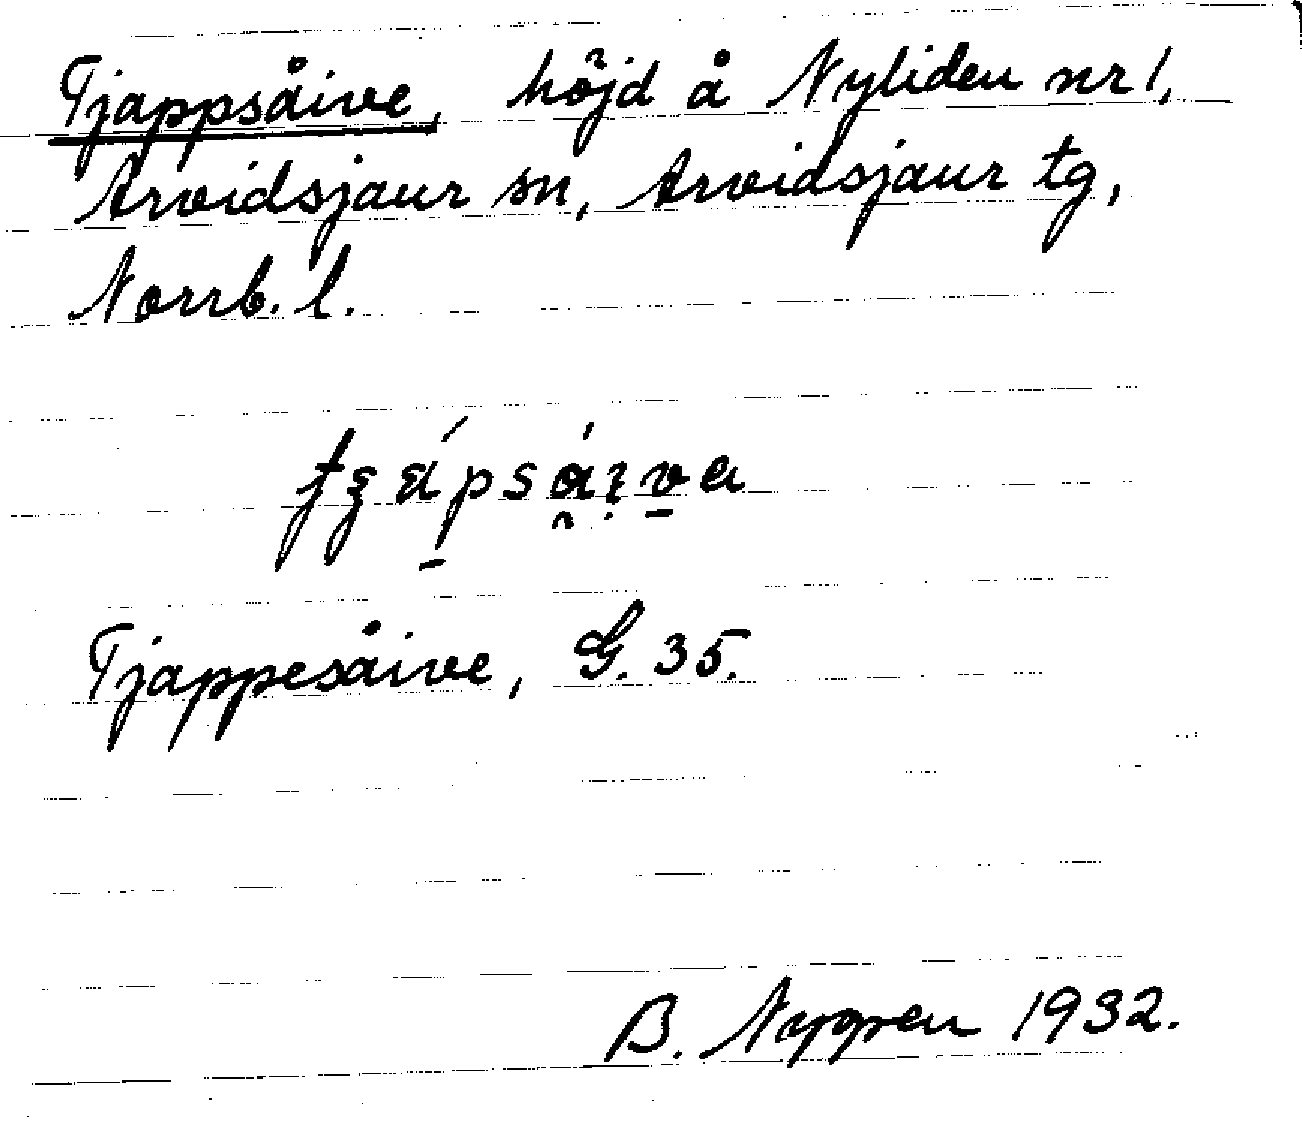 Tjappsåive, höjd å Nyliden nr 1,
Arvidsjaur sn, Arvidsjaur tg,
Norrb. l.
Tjappesåive, G. 35.
B. Nyppen 1932.